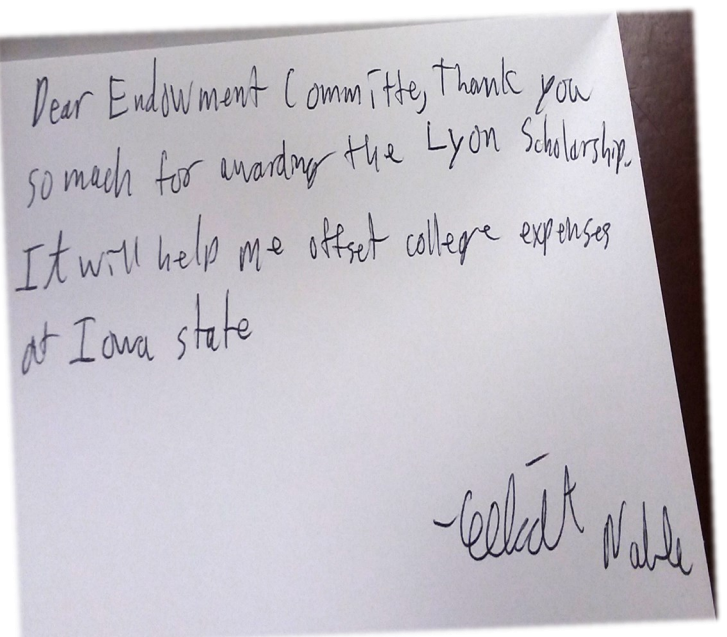 Dear Endowment Committe, Thank you
so much for awarding the Lyon Scholarship.
It will help me offset college expenses
at Iowa state
Noble